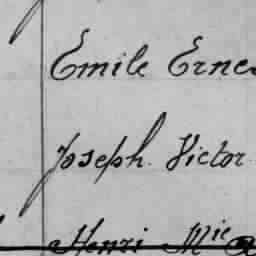 Emile Erne
Joseph. Victor
Henri Mie